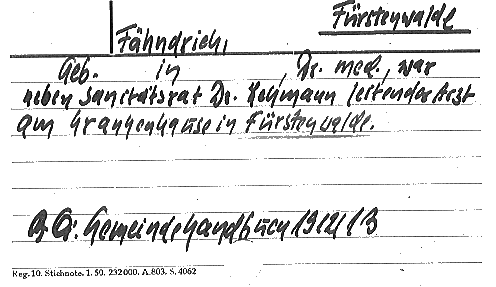 Fürstenwalde
Fähndrich,
Geb. in , Dr. med., war
neben Sanitätsrat Dr. Hehmann leitender Arzt
am Krankenhause in Fürstenwalde.
Gemeindehandbuch 1912/13
Reg. 10. Stichnote. 1. 50. 232000. A.803. S. 4062